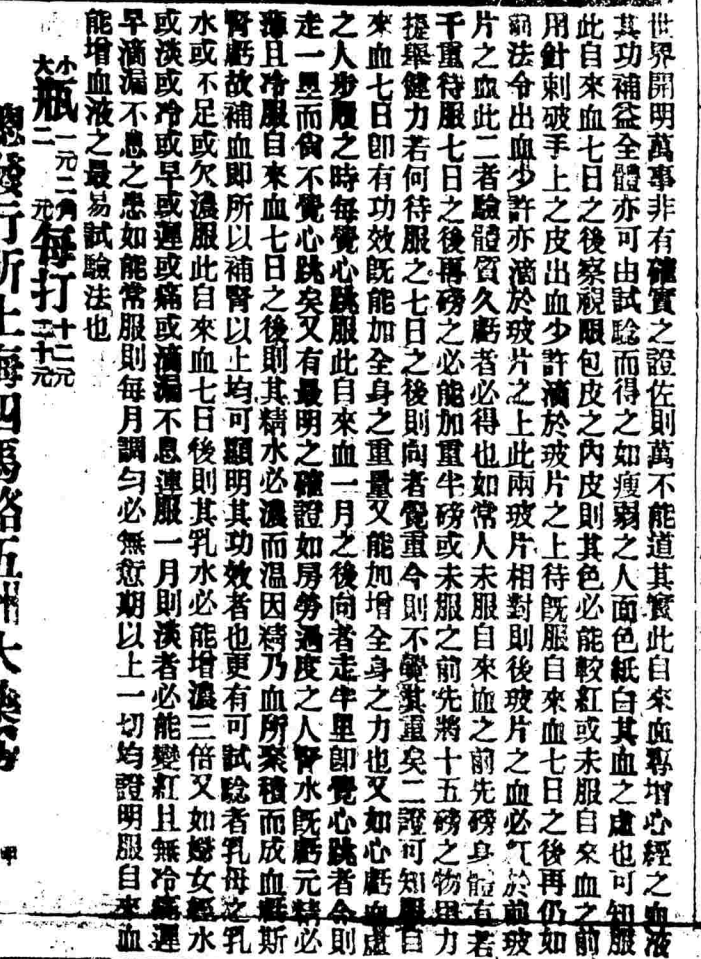 世界開明萬事非有確實之證佐則萬不能道其實此自來血專增心經之血液
其功補益全體亦可由試驗而得之如瘦弱之人面色紙白其血之虛也可知服
此自來血七日之後察視眼包皮之內皮則其色必能較紅或未服自來血之前
用針刺破手上之皮出血少許滴於玻片之上待旣服自來血七日之後再仍如
前法令出血少許亦滴於玻片之上此兩玻片相對則後玻片之血必紅於前玻
片之血此二者驗體質久虧者必得也如常人未服自來血之前先磅身體有若
千重待服七日之後再磅之必能加重半磅或未服之前先將十五磅之物用力
提舉健力若何待服之七日之後則向者覺重今則不覺其重矣二證可知服自
來血七日卽有功效旣能加全身之重量又能加增全身之力也又如心虧血虛
之人步履之時每覺心跳服此自來血一月之後向者走半里卽覺心跳者今則
走一里而尙不覺心跳矣又有最明之確證如房勞過度之人腎水旣虧元精必
薄且冷服自來血七日之後則其精水必濃而温因精乃血所聚積而成血虧斯
腎虧故補血即所以補腎以上均可顯明其功效者也更有可試驗者乳母之乳
水或不足或欠濃服此自來血七日後則其乳水必能增濃三倍又如婦女經水
或淡或冷或早或遲或痛或滴漏不息連服一月則淡者必能變紅且無冷痛遲
早滴漏不息之患如能常服則每月調勻必無愆期以上一切均證明服自來血
能增血液之最易試驗法也
小瓶一元二角每打十二元
大瓶二元每打二十元
總發行所上海四馬路五洲大藥房
甲